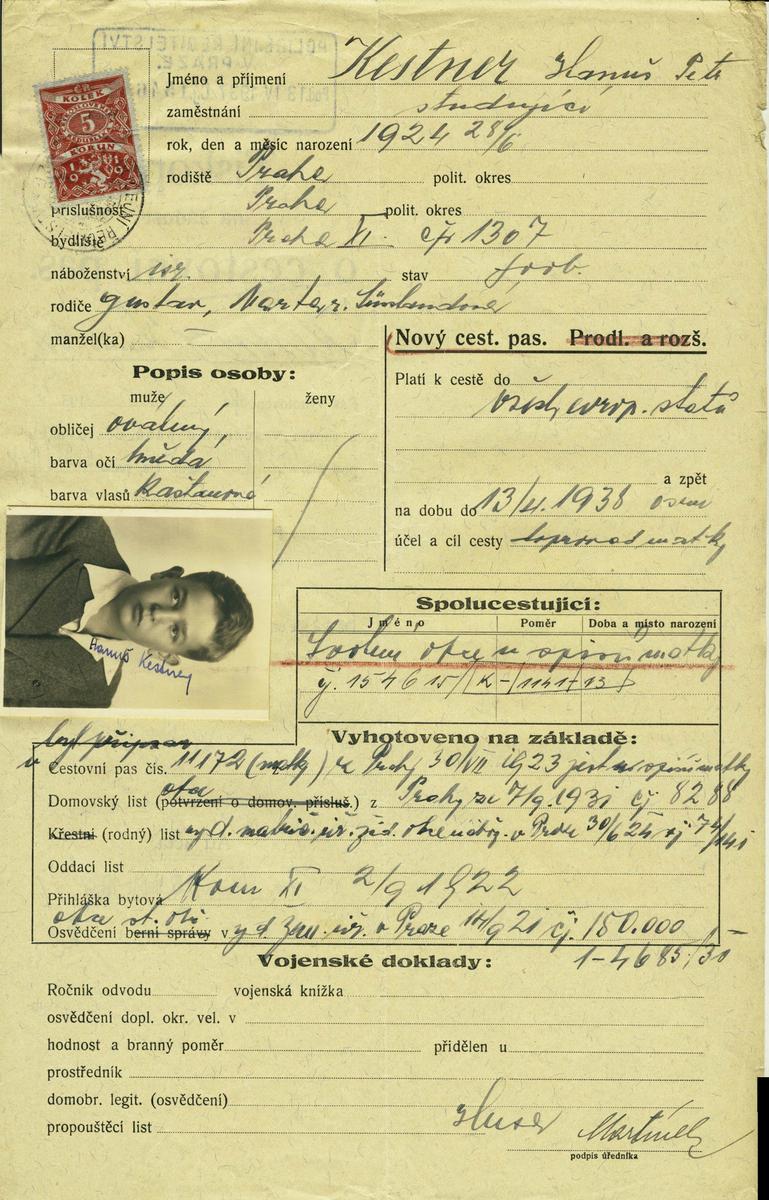 POLICEJNÍ ŘEDITELSTVÍ
V PRAZE.
ČR
KOLEK
5
KORUN
Jméno a příjmení Kestner Hanuš Petr
zaměstnání studující
rok, den a měsíc narození 1924 28/6
rodiště Praha polit. okres
příslušnost Praha polit. okres
bydliště Praha XI. čp 1307
náboženství isr. stav svob.
rodiče Gustav, Marta r.
manžel(ka) —
Nový cest. pas. Prodl. a rozš.
Popis osoby:
muže ženy
obličej oválný,
barva očí hnědá
barva vlasů kaštanové
Platí k cestě do
všech evrop. států
a zpět
na dobu do 13/ 1938
účel a cíl cesty doprovod matky
Hanuš Kestner
Spolucestující:
Jméno Poměr Doba a místo narození
otce u spisů matky
č. 1546
Vyhotoveno na základě:
byl připsán
v Cestovní pas čís. 11172 (matky) z Prahy 30/VII 1923 jest u spisů matky
otce
Domovský list (potvrzení o domov. přísluš.) z Prahy ze 7/9 1931 čj 8288
Křestní (rodný) list vyd. matrič. úř. žid. obce v Praze 30/6 24
Oddací list
Přihláška bytová Kom XI 2/9 1922
otce st. ob.
Osvědčení berní správy v vyd. zem. úř. v Praze 14/9 21 čj. 150.000
Vojenské doklady:
Ročník odvodu vojenská knížka
osvědčení dopl. okr. vel. v
hodnost a branný poměr přidělen u
prostředník
domobr. legit. (osvědčení)
propouštěcí list
podpis úředníka